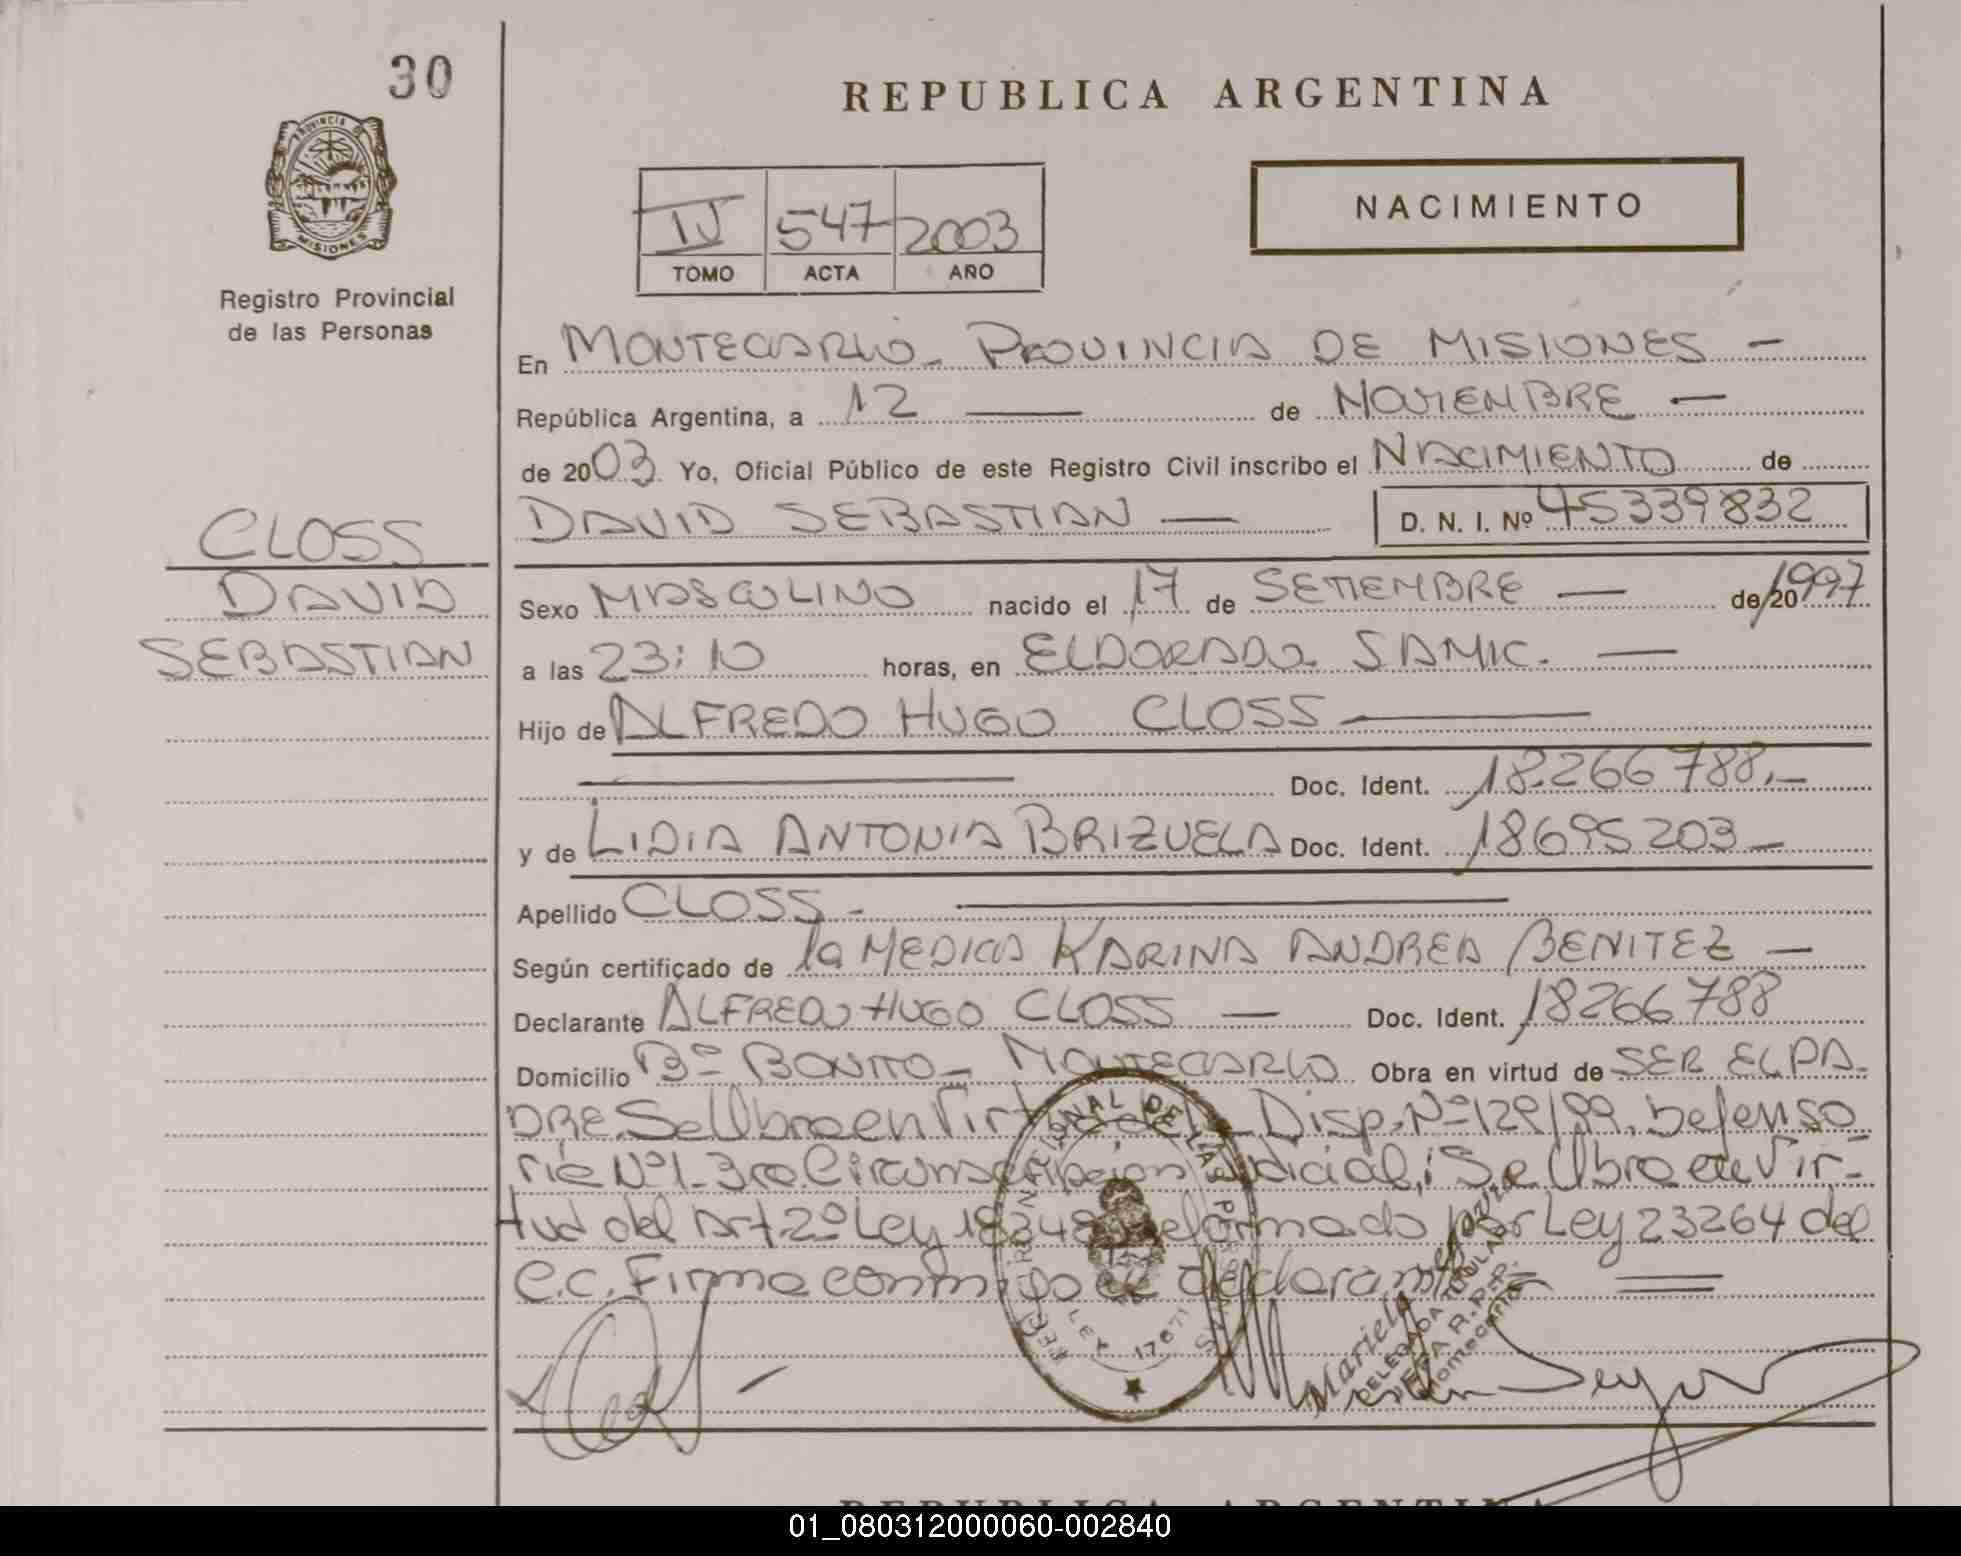 30
REPUBLICA ARGENTINA
PROVINCIA DE
MISIONES
Registro Provincial
de las Personas
NACIMIENTO
547 2003
TOMO ACTA AÑO
En MONTECARLO - PROVINCIA DE MISIONES -
República Argentina, a 12 — de NOVIEMBRE —
de 2003. Yo, Oficial Público de este Registro Civil inscribo el NACIMIENTO de
DAVID SEBASTIAN — D. N. I. Nº 45339832
CLOSS
DAVID
SEBASTIAN
Sexo MASCULINO nacido el 17 de SETIEMBRE — de/20 1997
a las 23:10 horas, en ELDORADO. SAMIC. —
Hijo de ALFREDO HUGO CLOSS —
— Doc. Ident. 18.266788.—
y de LIDIA ANTONIA BRIZUELA Doc. Ident. 18695203 —
Apellido CLOSS. —
Según certificado de la MEDICA KARINA ANDREA BENITEZ —
Declarante ALFREDO HUGO CLOSS — Doc. Ident. 18266788
Domicilio Bº BONITO - MONTECARLO Obra en virtud de SER EL PA-
DRE. Se Obra en Virtud de la Disp. Nº 129/99, Defenso
ria Nº 1- 3ra Circunscripción Judicial, i Se Obra en Vir-
tud del Art. 2º Ley 18248 reformado por Ley 23264 del
C.C. Firma conmigo el declarante =
LEY 17671
Mariela
DELEGADA TITULAR
01_080312000060-002840